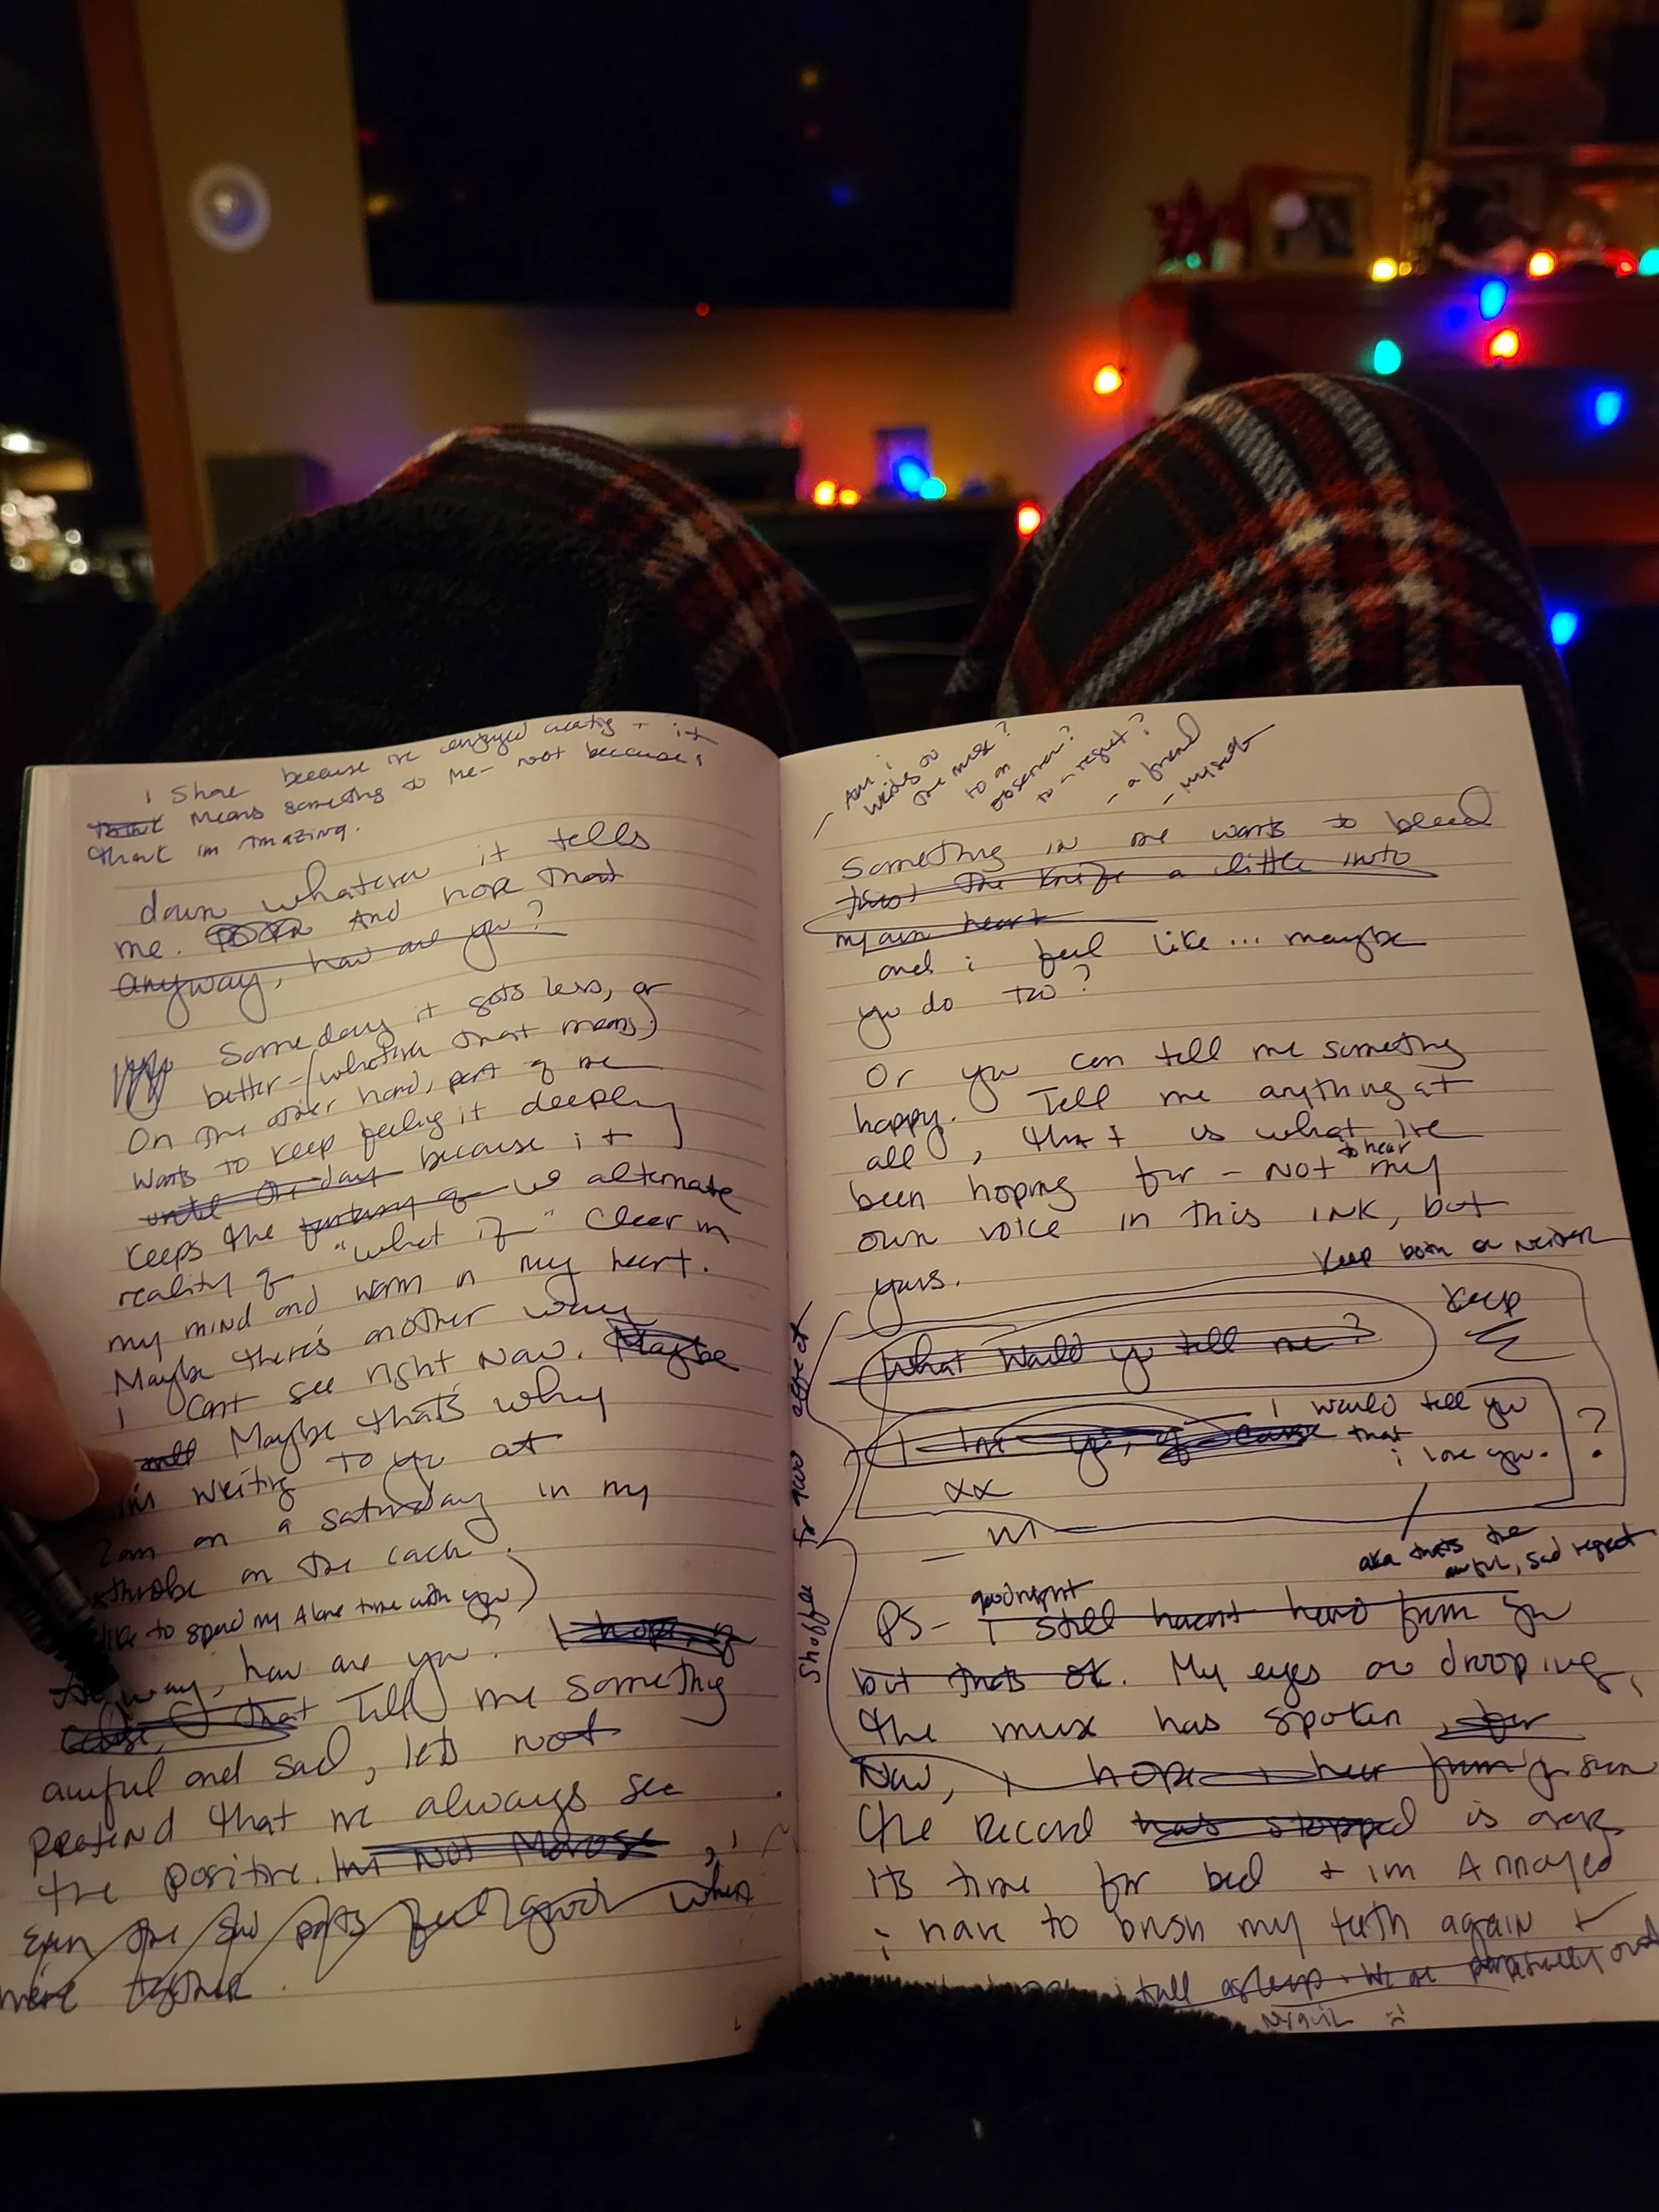 i share because i've enjoyed creating + it
means something to me - not because i
think im amazing.
down whatever it tells
me. And hope that
anyway, how are you?
Someday it gets less, or
better - (whatever that means)
On the other hand, part of me
wants to keep feeling it deeply
until one day because it
keeps the fantasy of alternate
reality of "what if" clear in
my mind and warm in my heart.
Maybe there's another way
i cant see right now. Maybe
Maybe thats why
im writing to you at
2am on a saturday in my
on the
like to spend my Alone time with you)
how are you? I hope
that Tell me something
awful and sad, lets not
pretend that we always see
the positive. Im not Morose, i
Even the sad parts feel good when
we're together.
Am i
writing to
the muse?
to an
observer?
to - regret?
- a friend
- myself
Something in me wants to bleed
twist the knife a little into
my own heart
and i feel like... maybe
you do too?
Or you can tell me something
happy. Tell me anything at
all, that is what ive
been hoping for - not to hear my
own voice in this ink, but
yours.
Keep both or neither
Keep
What would you tell me?
I love you, of course
i would tell you
that
i love you.
?
xx
aka thats the
awful, sad regret
Shoffee for two
PS- goodnight
i still havent heard from you
but thats ok. My eyes are drooping,
the muse has spoken, for
Now, i hope i hear from you soon
the record has stopped is over
its time for bed + im Annoyed
i have to brush my teeth again +
i fall asleep. We are perpetually out
Nyquil :(